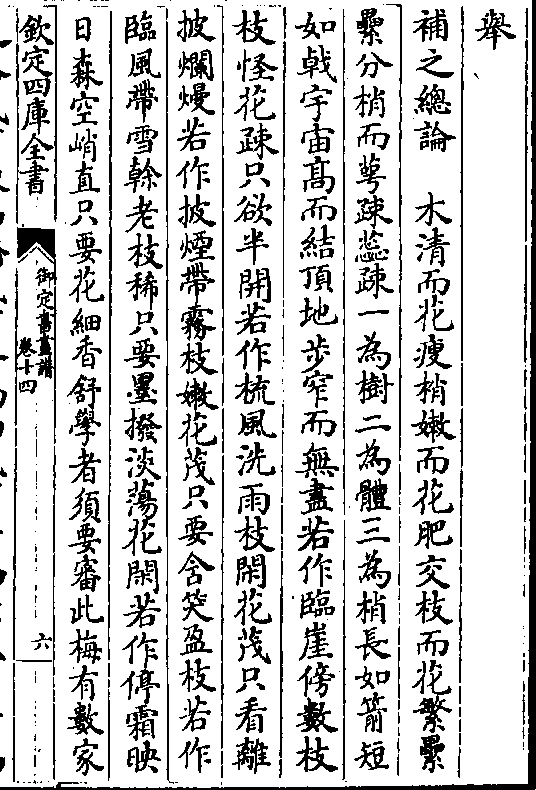 舉
補之總論　木清而花瘦梢嫩而花肥交枝而花繁纍
纍分梢而萼疎蕊疎一為樹二為體三為梢長如箭短
如戟宇宙高而結頂地步窄而無盡若作臨崖傍數枝
枝怪花疎只欲半開若作梳風洗雨枝閑花茂只看離
披爛熳若作披煙帶霧枝嫩花茂只要含笑盈枝若作
臨風帶雪幹老枝稀只要墨撥淡蕩花閑若作停霜映
日森空峭直只要花細香舒學者須要審此梅有數家
欽定四庫全書
御定書畫譜
卷十四
六